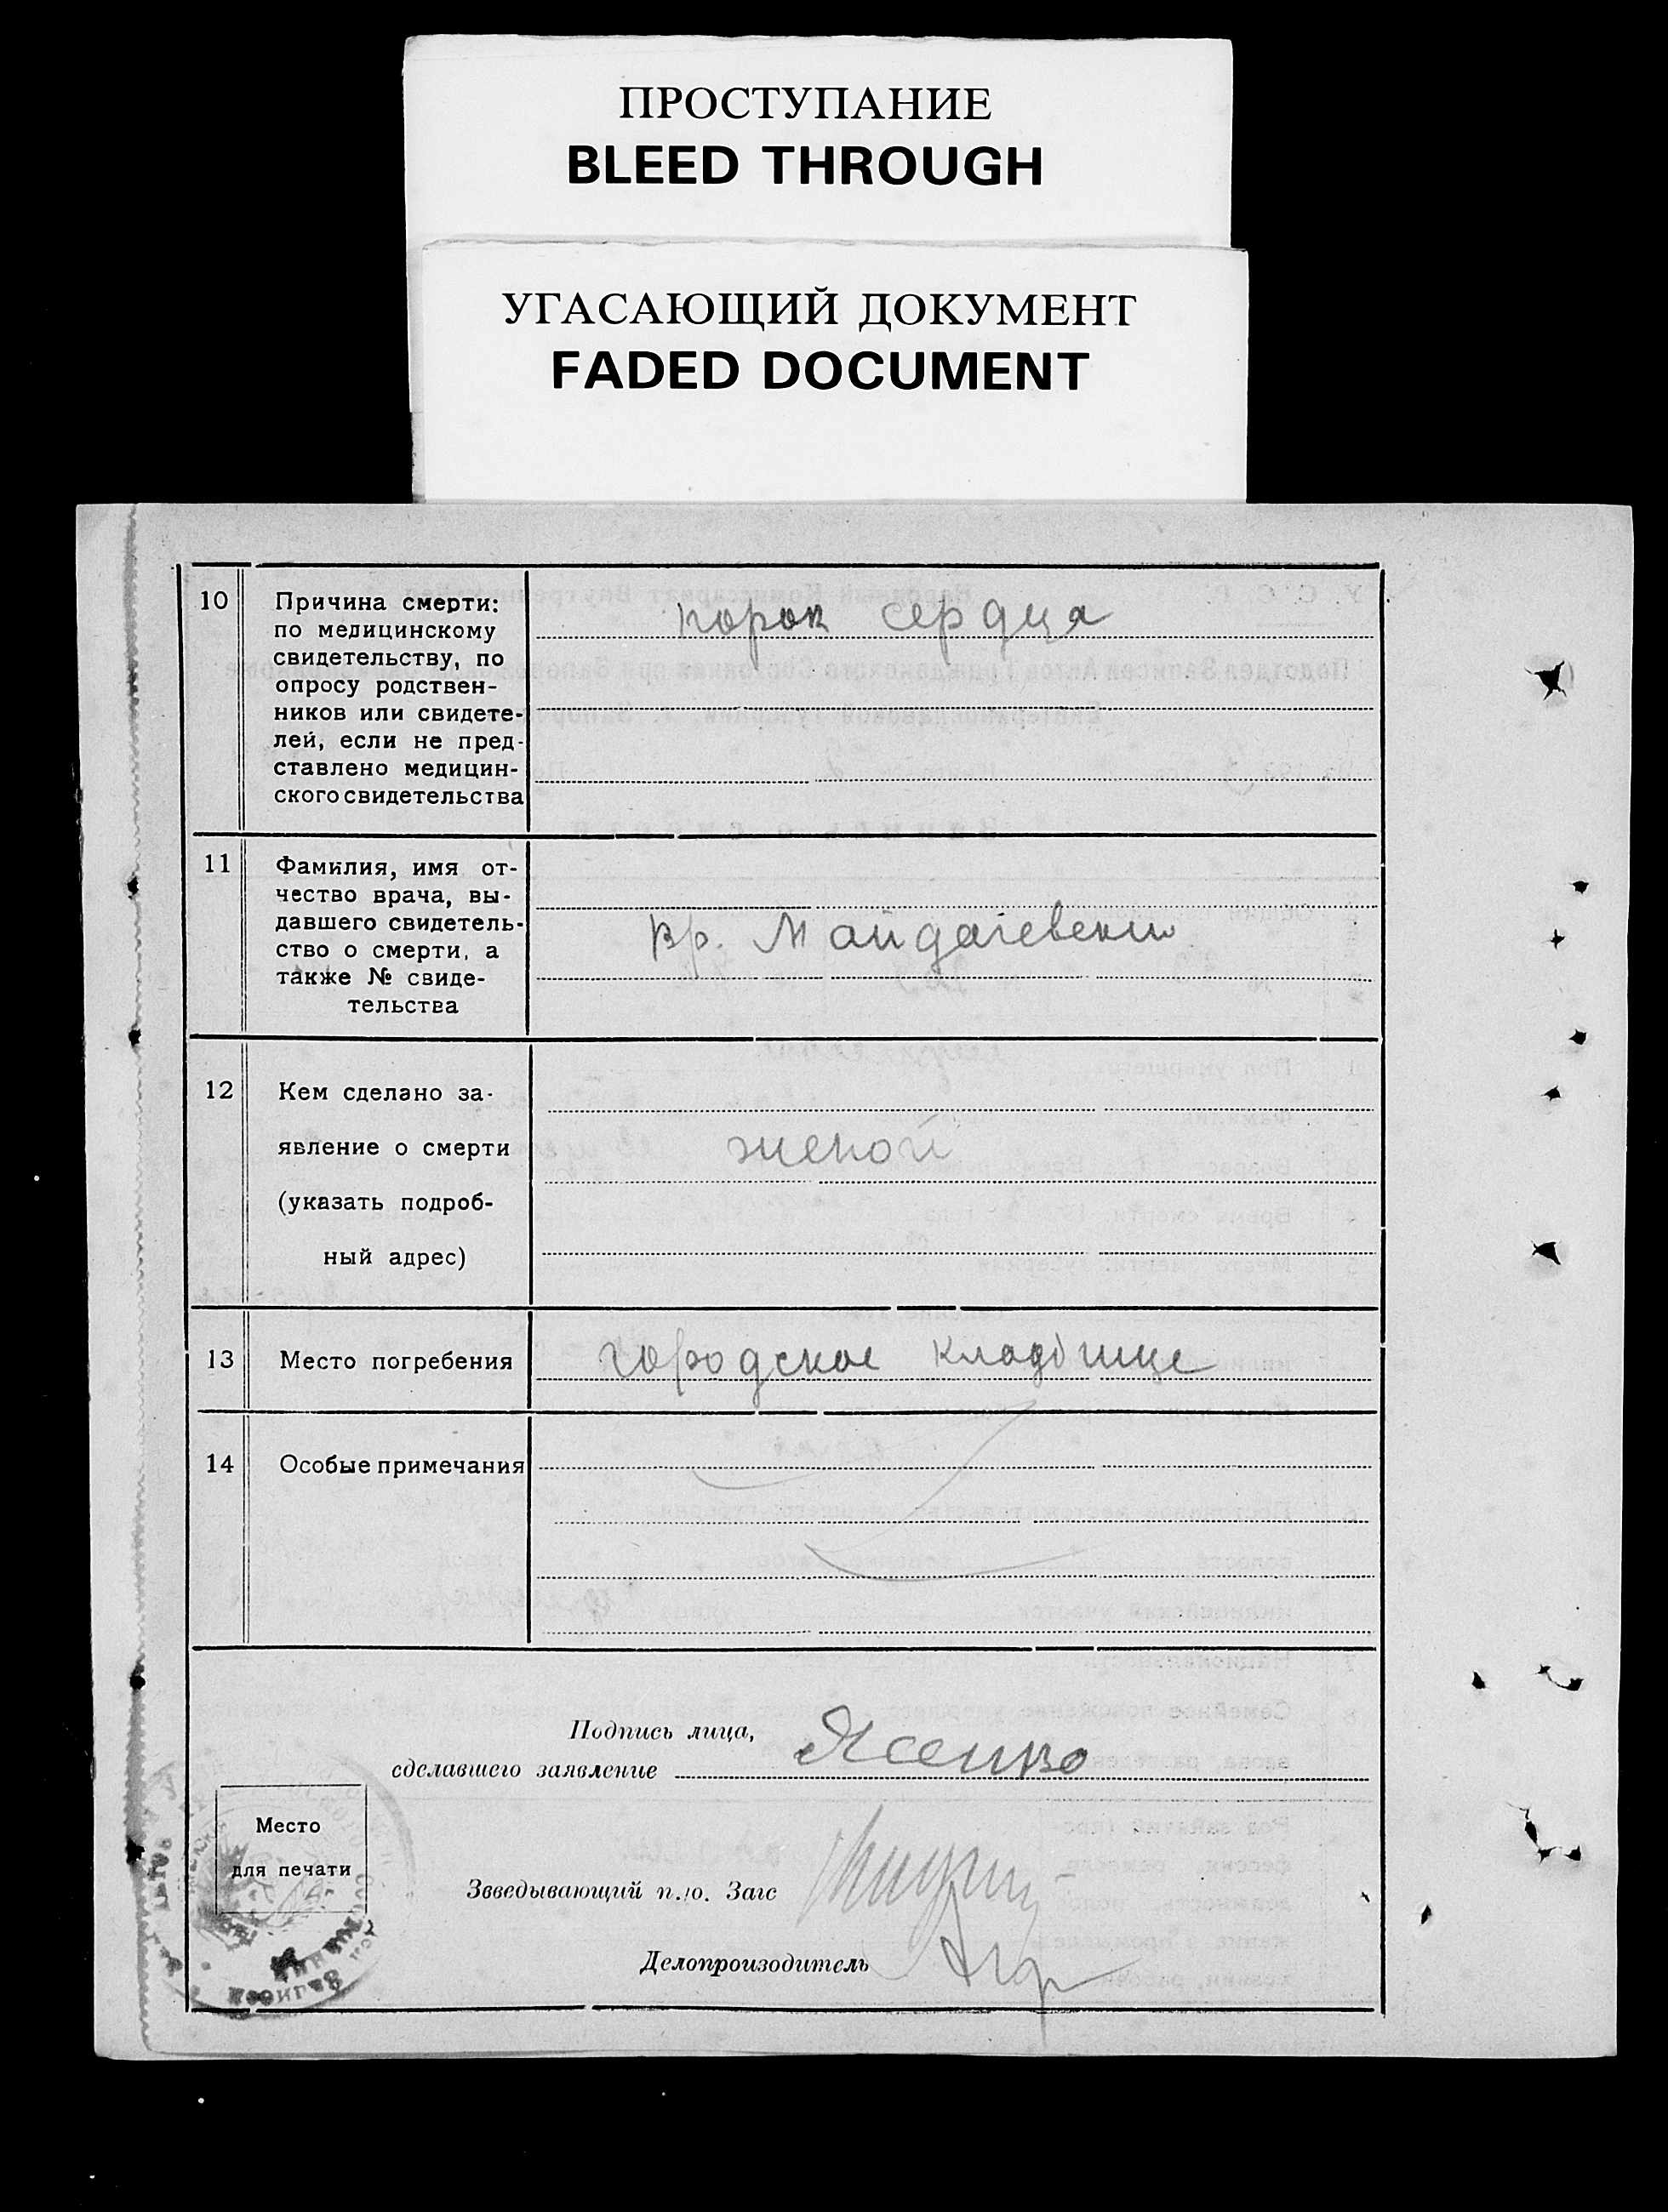 ПРОСТУПАНИЕ
BLEED THROUGH
УГАСАЮЩИЙ ДОКУМЕНТ
FADED DOCUMENT
10
Причина смерти:
по медицинскому
свидетельству, по
опросу родствен-
ников или свидете-
лей, если не пред-
ставлено медицин-
ского свидетельства
порок сердца
11
Фамилия, имя от-
чество врача, вы-
давшего свидетель-
ство о смерти, а
также № свиде-
тельства
вр.
12
Кем сделано за-
явление о смерти
(указать подроб-
ный адрес)
женой
13
Место погребения
городское кладбище
14
Особые примечания
Подпись лица,
сделавшего заявление
Место
для печати
Зведывающий п./о. Загс
Делопроизводитель